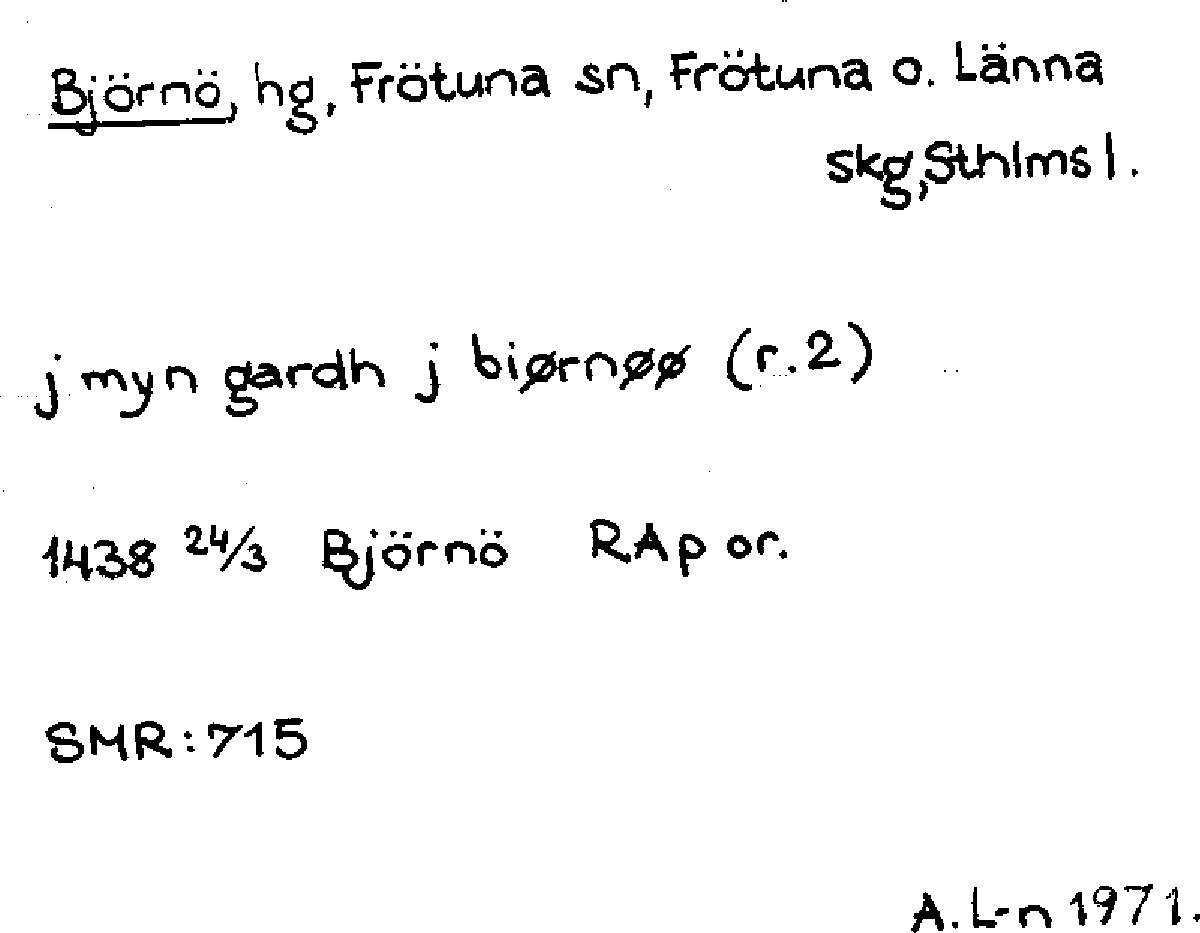 Björnö, hg, Frötuna sn, Frötuna o. Länna
skg, Sthlms l.
j myn gardh j biørnøø (r.2)
1438 24/3 Björnö RAp or.
SMR: 715
A. L-n 1971.